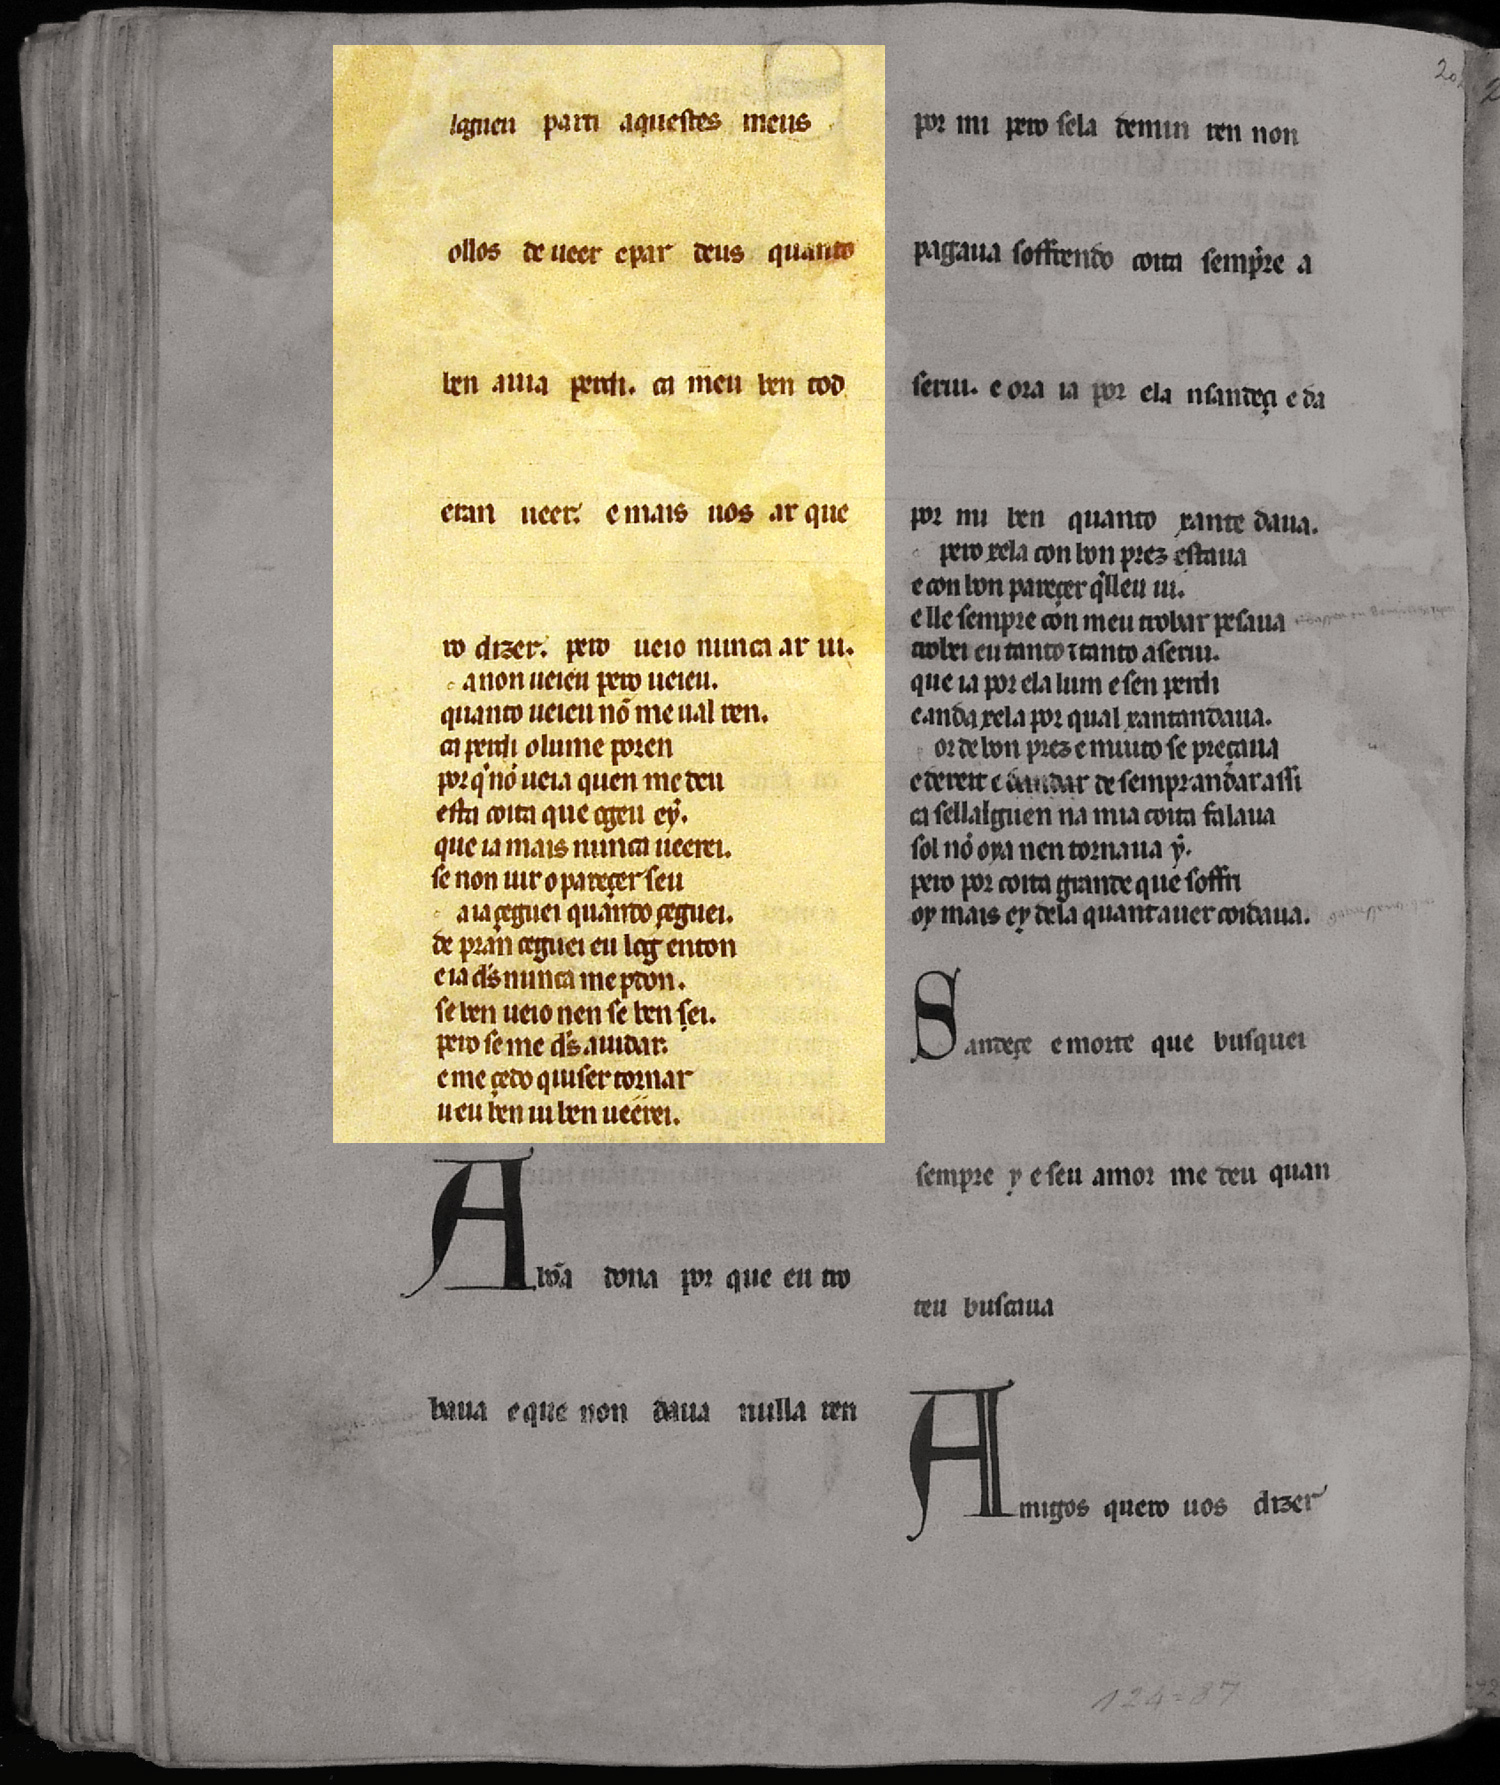 lgueu parti aquestes meus
ollos de ueer e par deus quanto
ben auia perdi. ca meu ben tod
eran ueer. e mais uos ar que
ro dizer. pero ueio nunca ar ui.
a non ueieu pero ueieu.
quanto ueieu nō me ual ren.
ca perdi o lume poren
por q̄ nō ueia quen me deu
esta coita que ogeu eẏ.
que ia mais nunca ueerei.
se non uir o pareçer seu
a ia çeguei quando çeguei.
de pran çeguei eu log enton
e ia ds̄ nunca me pdon.
se ben ueio nen se ben sei.
pero se me ds̄ aiudar.
e me çedo quiser tornar
u eu ben ui ben ueerei.
A bōa dona por que eu tro
baua e que non daua nulla ren
por mi pero sela de min ren non
pagaua soffrendo coita sempre a
serui. e ora ia por ela nsandeçi e da
por mi ben quanto xante daua.
pero xela con bon prez estaua
e con bon pareçer q̄lleu ui.
e lle sempre con meu trobar pesaua
trobei eu tanto ⁊ tanto a serui.
que ia por ela lum e sen perdi
e anda xela por qual xantandaua.
or de bon prez e muito se preçaua
e dereit e dandar de semprandar assi
ca sellalguen na mia coita falaua
sol nō oya nen tornaua ẏ.
pero por coita grande que soffri
oy mais ey dela quantauer coidaua.
Sandeçe e morte que busquei
sempre y e seu amor me deu quan
teu buscaua
Amigos quero uos dizer
124=87